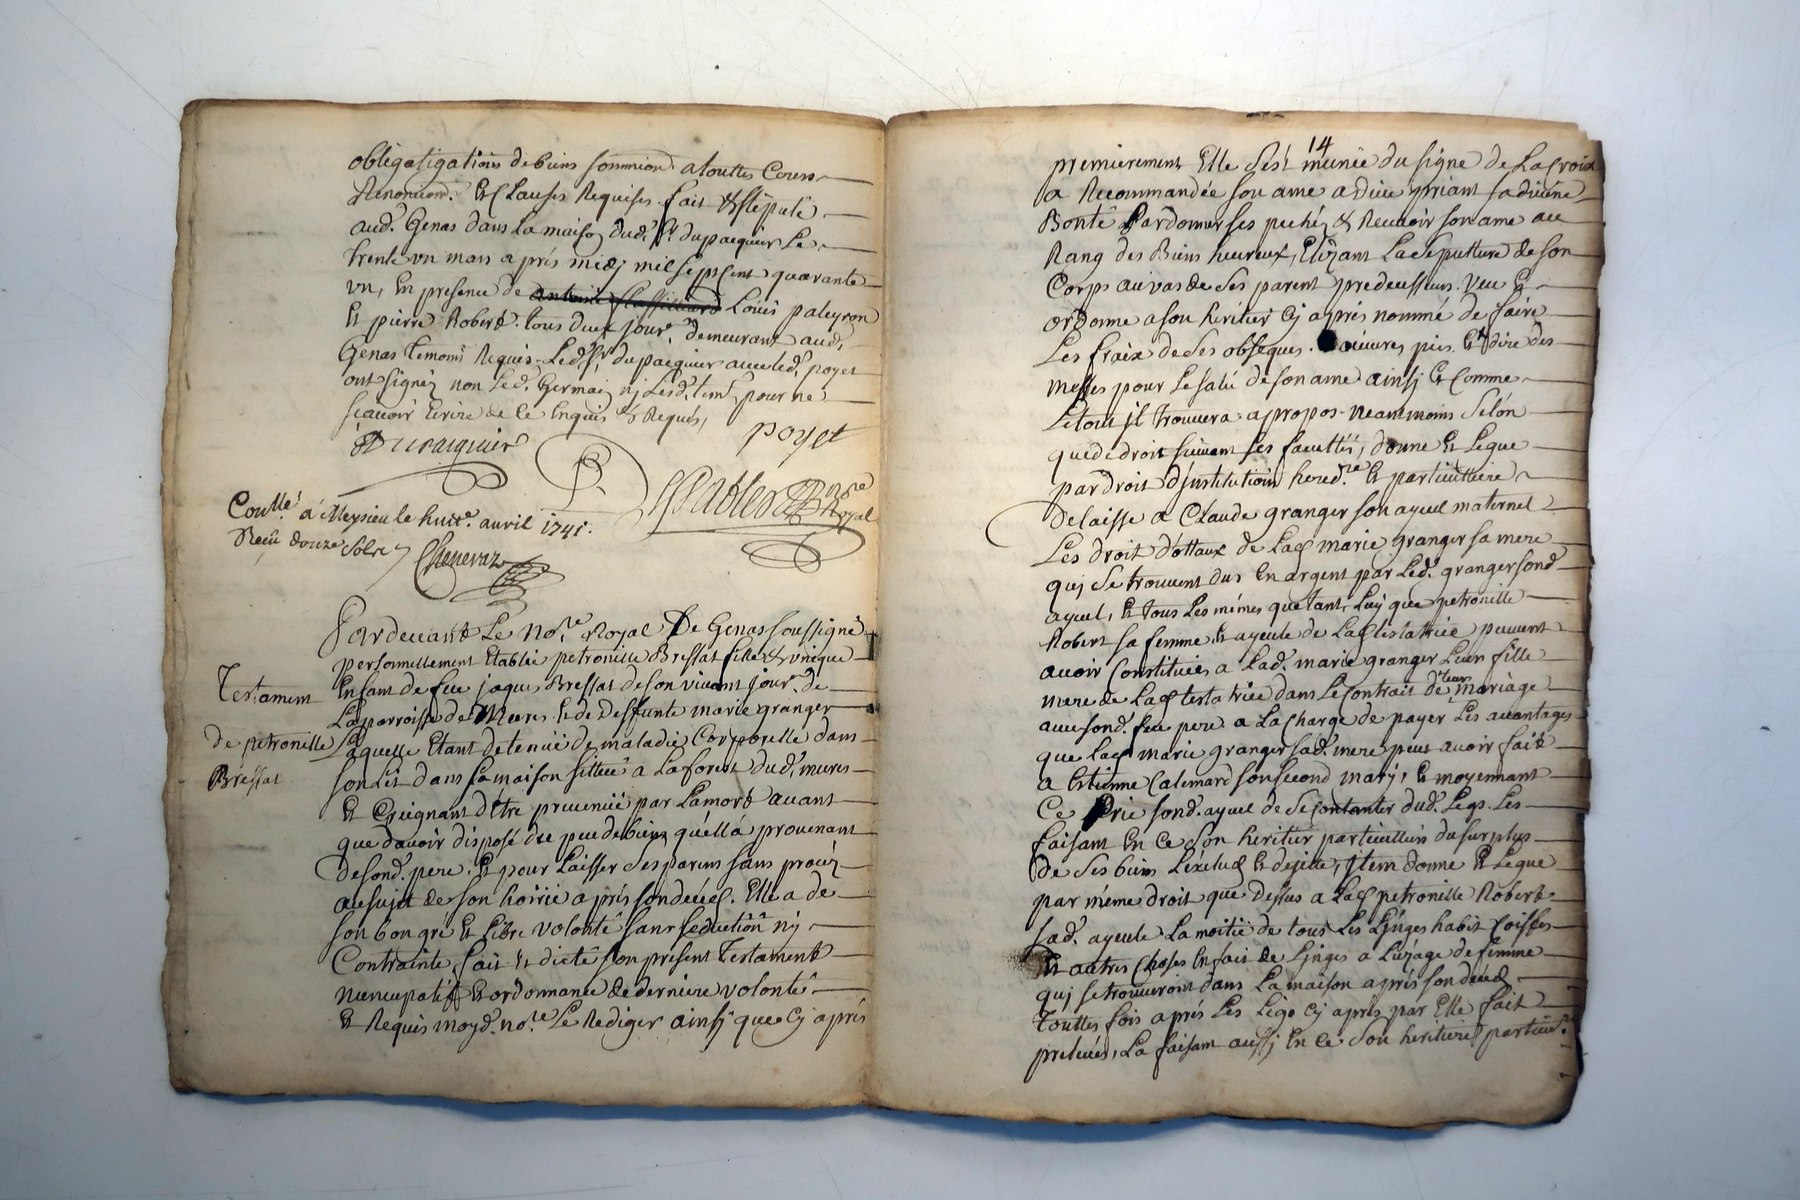 obligatigations de biens sommiond. a touttes Cours
Renonciond. Et Clauses Requises fait & stipulé
aud. Genas dans La maison dud. Sr. dupacquier Le
trente un mars aprés midy mil sept Cent quarante
un, En presence de Loüis paleyron
Et pierre Robert tous deux jour.rs demeurant aud.
Genas temoins Requis Led. Sr. dupacquier avec led. poyet
ont signéz non Led. Germain nj Lesd. tem. pour ne
scavoir Ecrire de ce Enquis & Requis,
Dupacquier
poyet
nore
Royal
Coullé á Meysieu le huite. avril 1741.
Reçû douze sols
Chenevaz
Pardevant Le nore. Royal De Genas soussigné
personnellement Etablie petronille Bressat fille & unique
Testament
Enfant de feu jaques Bressat de son vivant jour. de
La parroisse de Mures Et de Deffunte marie granger
de petronille
Laquelle Etant detenüe de maladie Corporelle dans
Bressat
son Lit dans sa maison sittuée a La forest dud. mures
Et Creignant d'étre prevenüe par La mort avant
que d'avoir disposé du peu de biens qu'Ell'á provenant
de sond. pere, Et pour Laisser ses parens sans procéz
au sujet de son hoirie aprés son decéd. Elle a de
son bon gré Et Libre volonté sans seduction nj
Contrainte, fait Et dicté son present Testament
nuncupatif Et ordonnance de derniere volonté
Et Requis moyd. nore. Le Rediger ainsj que Cy aprés
14
premierement Elle s'est munie du signe de La Croix
a Recommandée son ame a Dieu priant sa divine
Bonté Pardonner ses pechéz & Recevoir son ame au
Rang des Biens heureux, Elizant La sepulture de son
Corps au vas de ses parent predecesseurs. Veu Et
ordonne a son heritier Cj aprés nommé de faire
Les fraix de ses obseques. oeuvres pies. Et dire des
messes pour Le salu de son ame ainsj Et Comme
Le tout il trouvera apropos neantmoins Selon
que de droit suivant ses facultés, donne Et Legue
par droit d'jnstitution hered.re Et particuliere
delaisse a Claude granger son ayeul maternel
Les droit dottaux de Lad marie granger sa mere
quj se trouvent dus En argent par Led. granger sond
ayeul, Et tous Les mémes que tant Luy que petronille
Robert sa femme, Et ayeule de Lad testatrice peuvent
avoir Constituées a Lad. marie granger Leur fille
mere de Lad testatrice dans Le Contrait de leur Mariage
avec sond. feu pere a La Charge de payer Les avantages
que Lad marie granger sad. mere peut avoir fait
a Etienne Calemard son second mary, Et moyennant
Ce Prie sond. ayeul de se Contanter dud. Legs. Les
faisant En Ce son heritier particullier du surplus
de ses biens L'éxclud Et dejette, jtem donne Et Legue
par méme droit que Dessus a Lad petronille Robert
sad. ayeule La moitié de tous Les Linges habit Coiffes
Et autres Choses En fait de Linges a L'uzage de femme
quj se trouveront dans La maison aprés son deced
Touttes fois aprés Les Légs Cj aprés par Elle fait
prelevés, La faisant aussj En Ce Son heritiere particul.